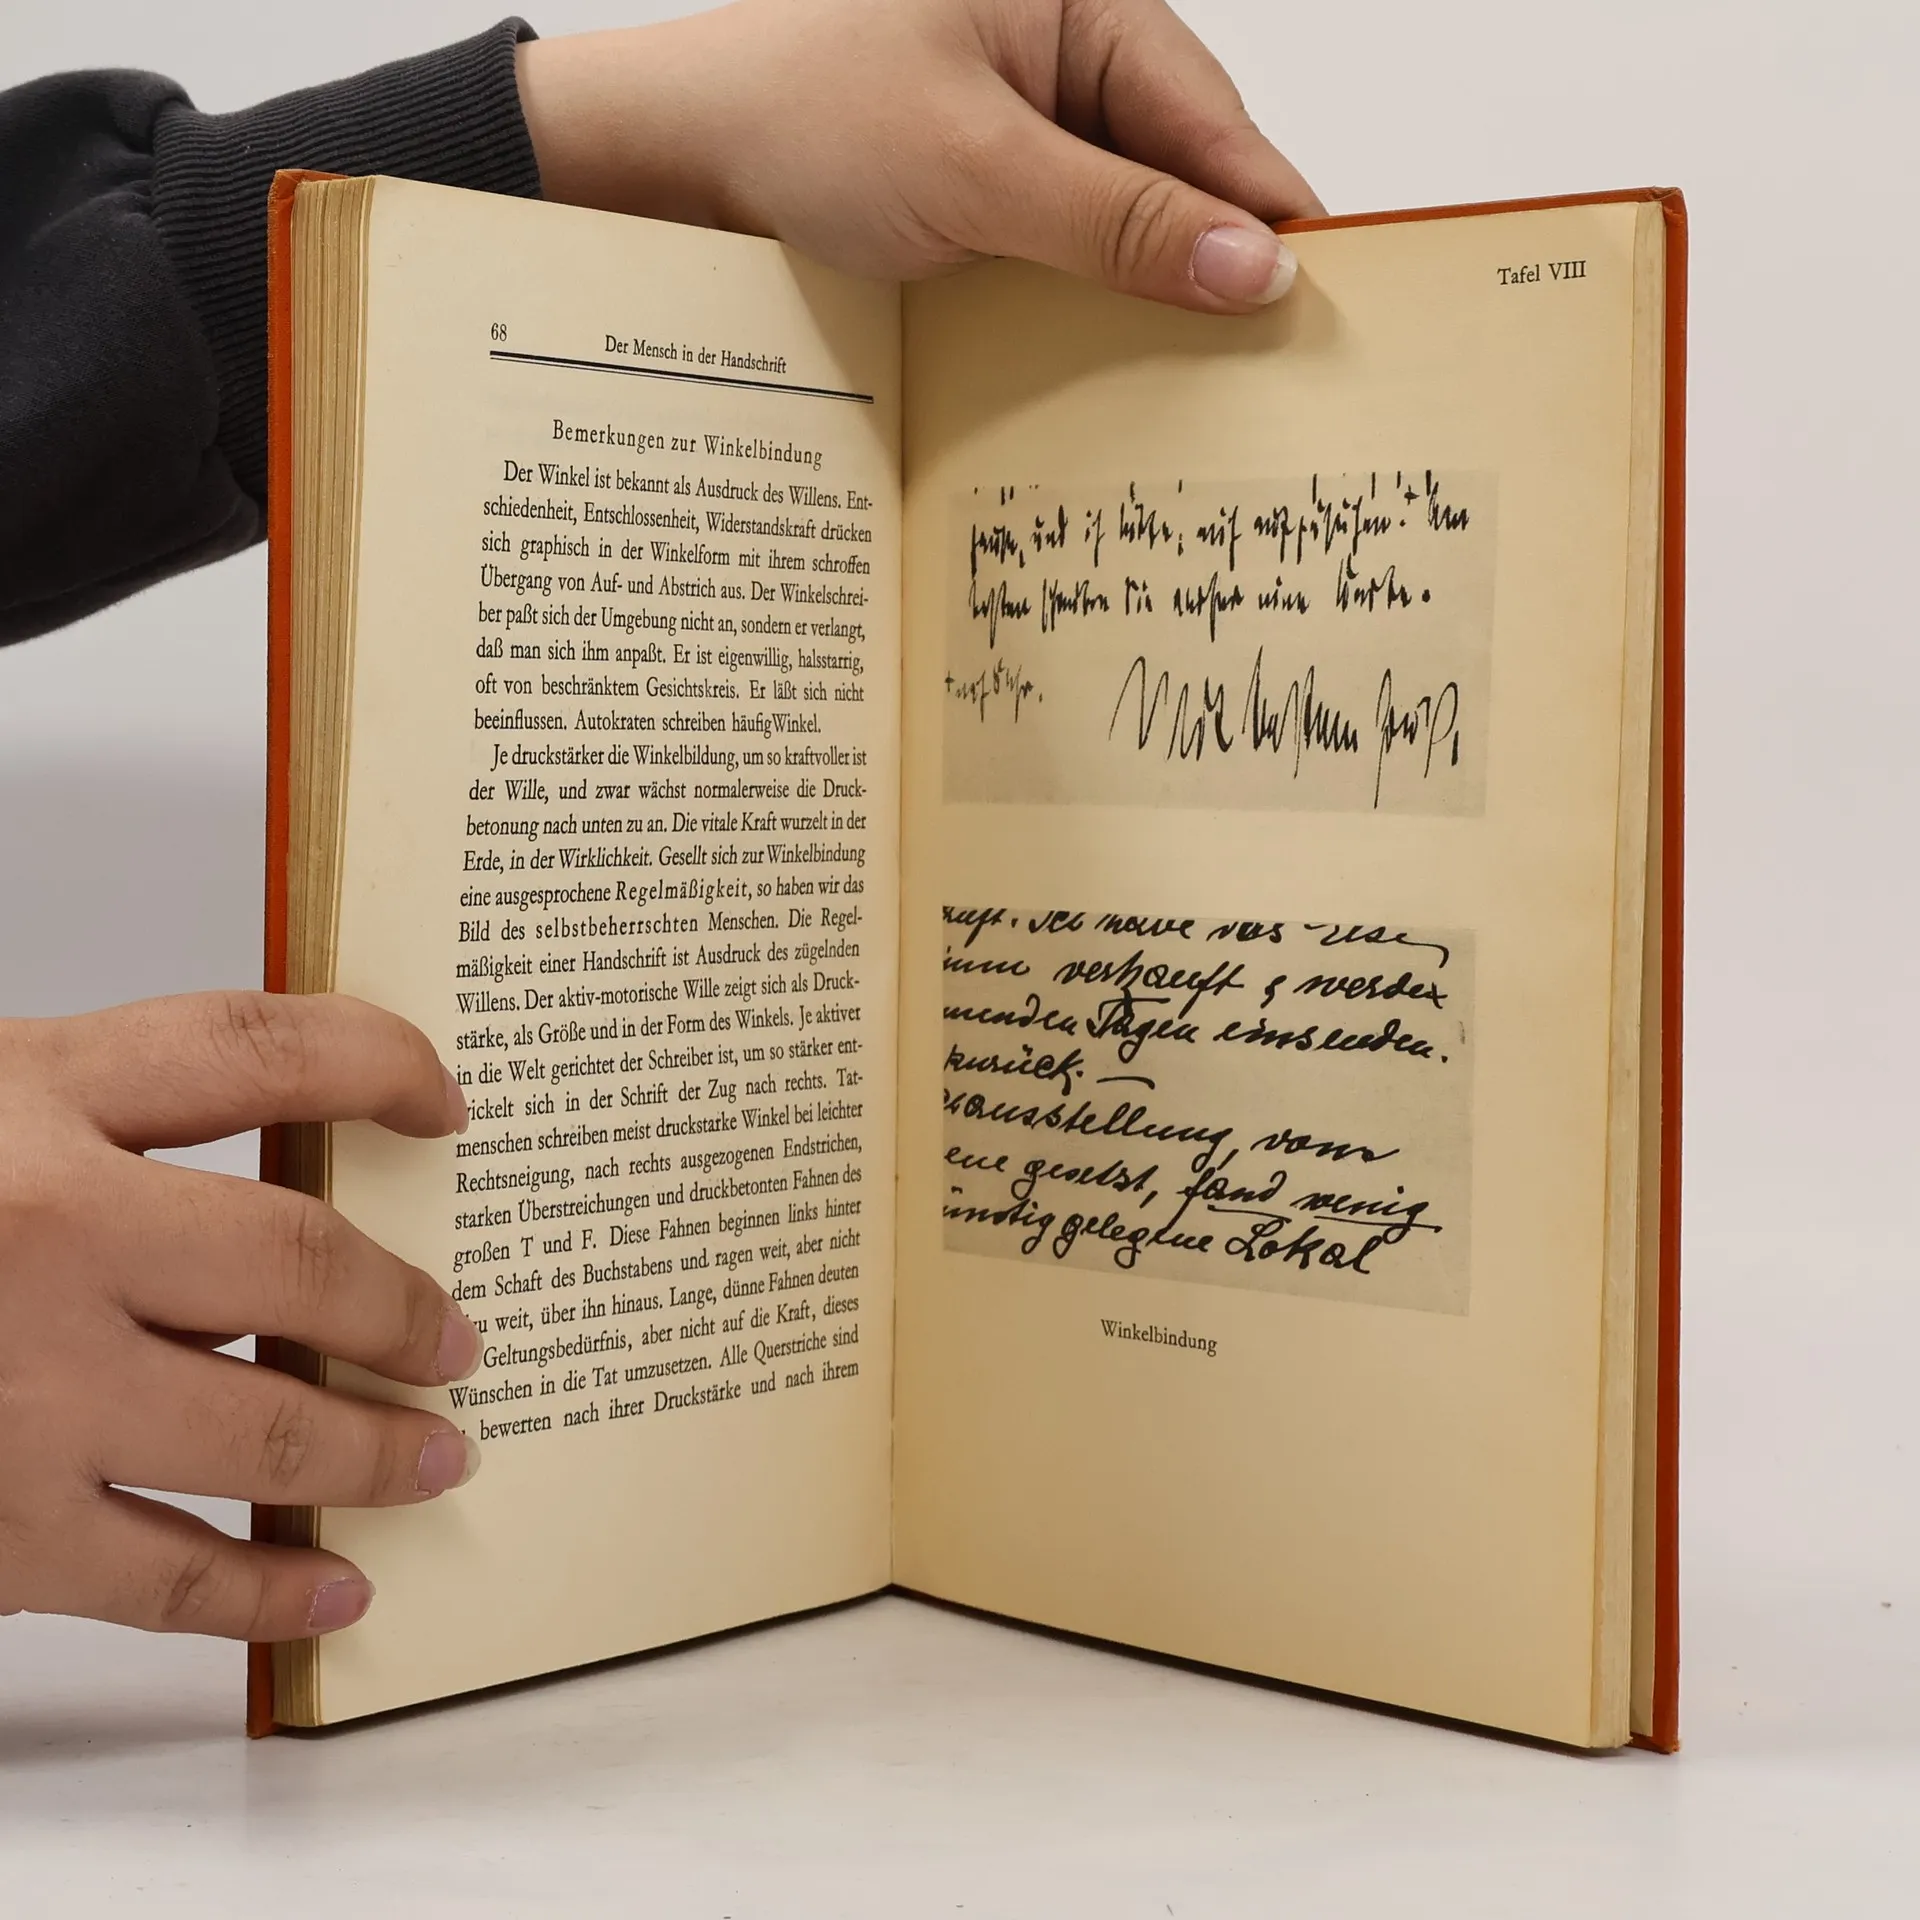 68
Der Mensch in der Handschrift
Bemerkungen zur Winkelbindung
Der Winkel ist bekannt als Ausdruck des Willens. Ent-
schiedenheit, Entschlossenheit, Widerstandskraft drücken
sich graphisch in der Winkelform mit ihrem schroffen
Übergang von Auf- und Abstrich aus. Der Winkelschrei-
ber paßt sich der Umgebung nicht an, sondern er verlangt,
daß man sich ihm anpaßt. Er ist eigenwillig, halsstarrig,
oft von beschränktem Gesichtskreis. Er läßt sich nicht
beeinflussen. Autokraten schreiben häufig Winkel.
Je druckstärker die Winkelbildung, um so kraftvoller ist
der Wille, und zwar wächst normalerweise die Druck-
betonung nach unten zu an. Die vitale Kraft wurzelt in der
Erde, in der Wirklichkeit. Gesellt sich zur Winkelbindung
eine ausgesprochene Regelmäßigkeit, so haben wir das
Bild des selbstbeherrschten Menschen. Die Regel-
mäßigkeit einer Handschrift ist Ausdruck des zügelnden
Willens. Der aktiv-motorische Wille zeigt sich als Druck-
stärke, als Größe und in der Form des Winkels. Je aktiver
in die Welt gerichtet der Schreiber ist, um so stärker ent-
wickelt sich in der Schrift der Zug nach rechts. Tat-
menschen schreiben meist druckstarke Winkel bei leichter
Rechtsneigung, nach rechts ausgezogenen Endstrichen,
starken Überstreichungen und druckbetonten Fahnen des
großen T und F. Diese Fahnen beginnen links hinter
dem Schaft des Buchstabens und ragen weit, aber nicht
weit, über ihn hinaus. Lange, dünne Fahnen deuten
Geltungsbedürfnis, aber nicht auf die Kraft, dieses
Wünschen in die Tat umzusetzen. Alle Querstriche sind
bewerten nach ihrer Druckstärke und nach ihrem
Tafel VIII
und ich bitte, mich aufzusuchen. Am
besten Sie vorher eine Karte.
Mit bestem Gruß,
Ich habe das
verkauft & werde
Tagen einsenden.
zurück. —
ausstellung, vom
ene gesetzt, fand wenig
ünstig gelegene Lokal
Winkelbindung